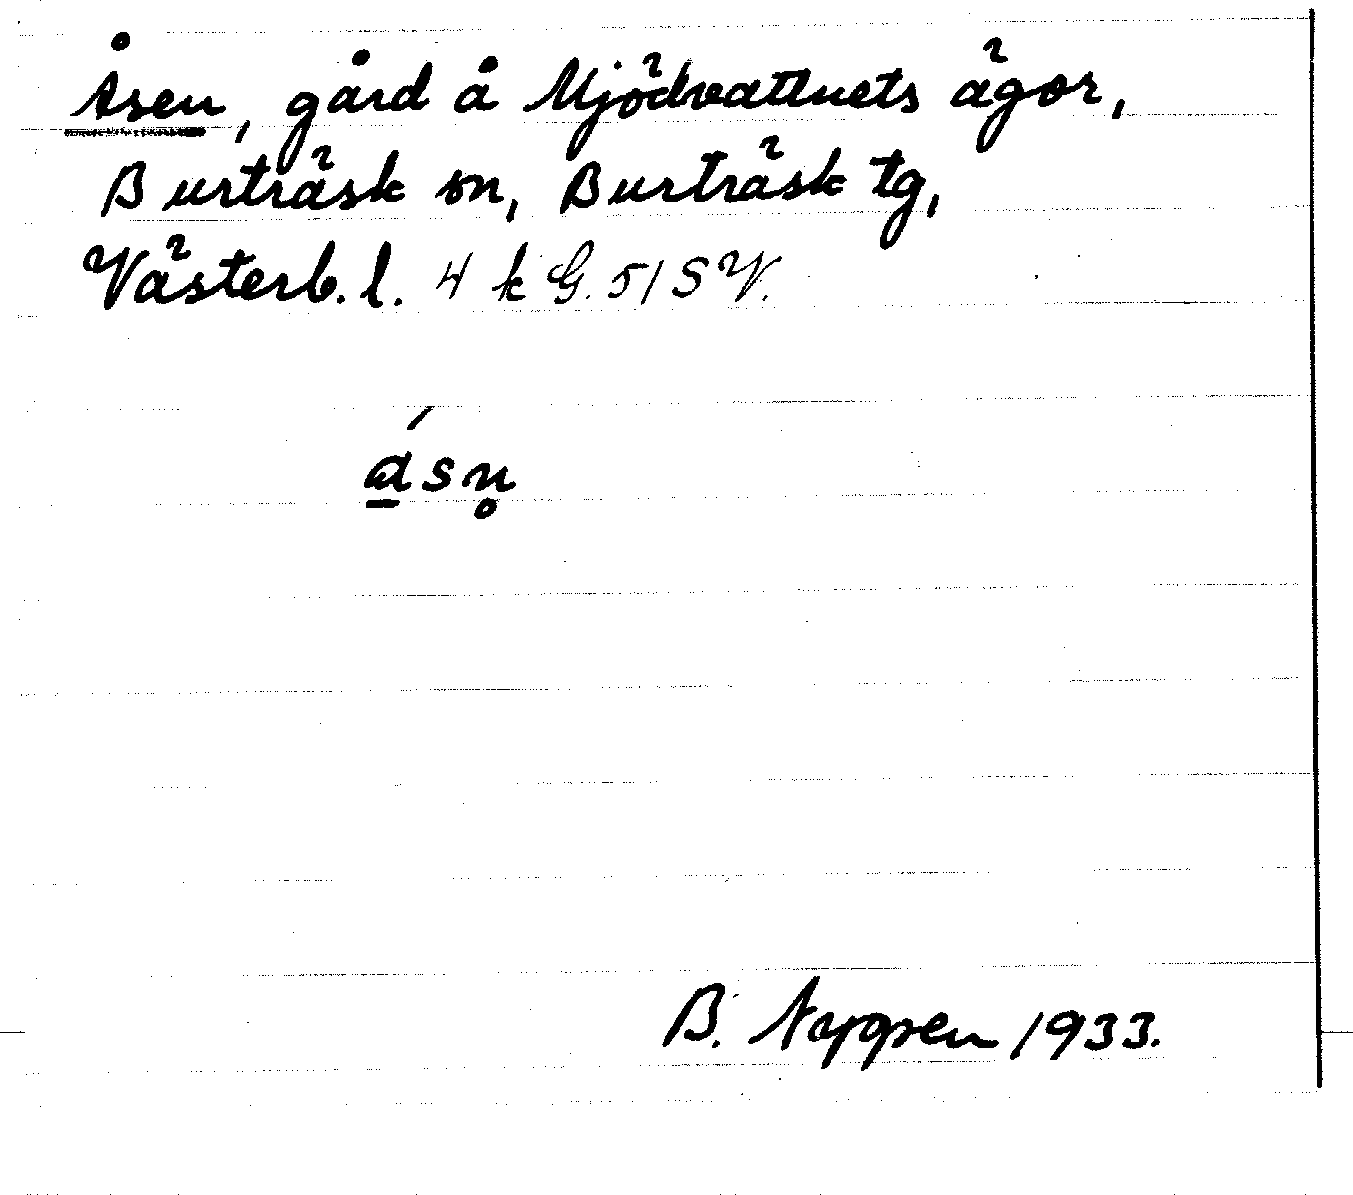 Åsen, gård å Mjödvattnets ägor,
Burträsk sn, Burträsk tg,
Västerb. l. 4 k G. 51 SV.
ásn̥
B. Nygren 1933.